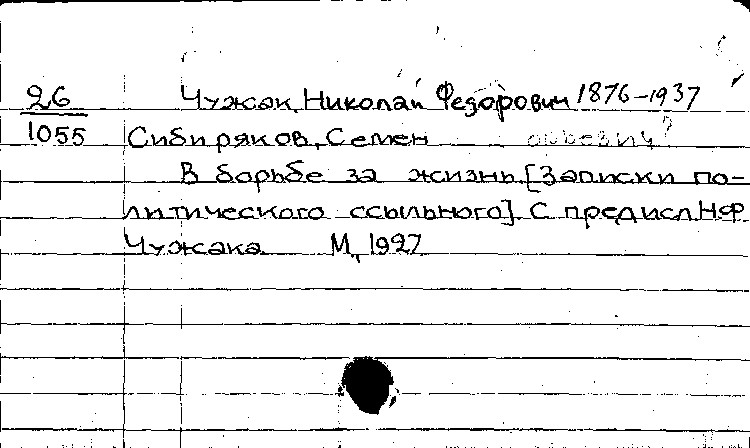 26 Чужак, Николай Федорович 1876-1937
1055 Сибиряков, Семен
В борьбе за жизнь. [Записки по-
литического ссыльного]. С предисл. Н.Ф.
Чужака. М., 1927